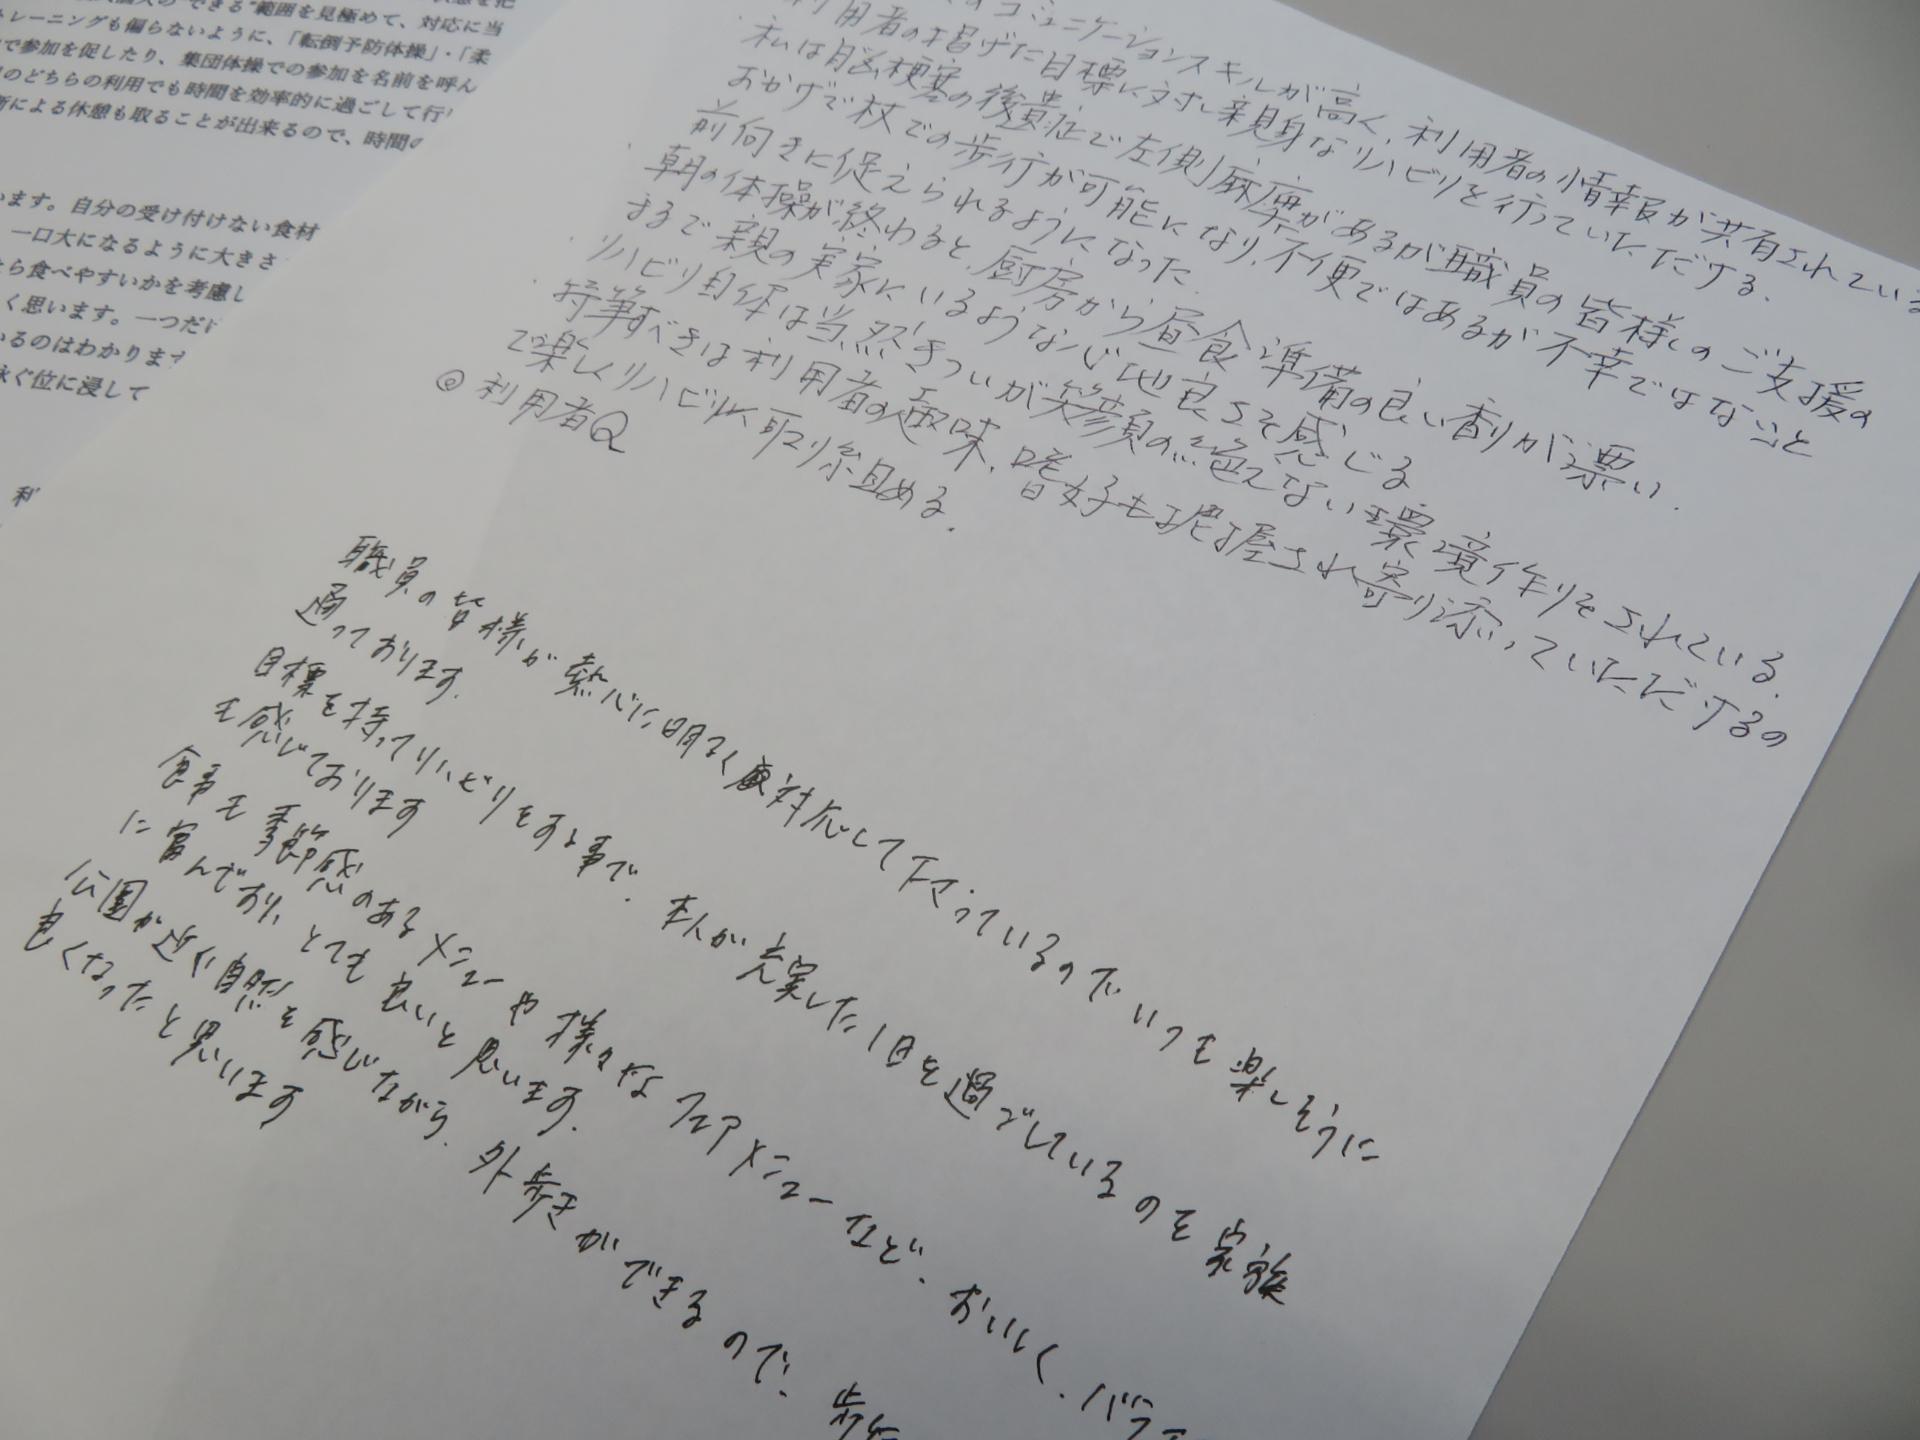 "できる"範囲を見極めて、対応に当
トレーニングも偏らないように、「転倒予防体操」・「柔
で参加を促したり、集団体操での参加を名前を呼ん
のどちらの利用でも時間を効率的に過ごして行
による休憩も取ることが出来るので、時間の
います。自分の受け付けない食材
一口大になるように大きさ
ら食べやすいかを考慮し
く思います。一つだけ
いるのはわかります
ぐ位に浸して
利
コミュニケーションスキルが高く、利用者の情報が共有されている
利用者の掲げた目標に対し親身なリハビリを行っていただける.
私は脳梗塞の後遺症で左側麻痺があるが職員の皆様のご支援の
おかげで杖での歩行が可能になり、不便ではあるが不幸ではないと
前向きに捉えられるようになった.
朝の体操が終わると、厨房から昼食準備の良い香りが漂い.
まるで親の実家にいるような心地良さを感じる
リハビリ自体は当然きついが笑顔の絶えない環境作りをされている.
特筆すべきは利用者の趣味、嗜好も把握され寄り添っていただけるの
で楽しくリハビリに取り組める.
◎利用者Q
職員の皆様が熱心に明るく対応して下さっているのでいつも楽しそうに
通っております.
目標を持ってリハビリをする事で、本人が充実した1日を過ごしているのを家族
も感じております
食事も季節感のあるメニューや様々なフェアメニューなど、おいしく、バラエ
に富んでおり、とても良いと思います.
公園が近く自然を感じながら、外歩きができるので、歩行
良くなったと思います